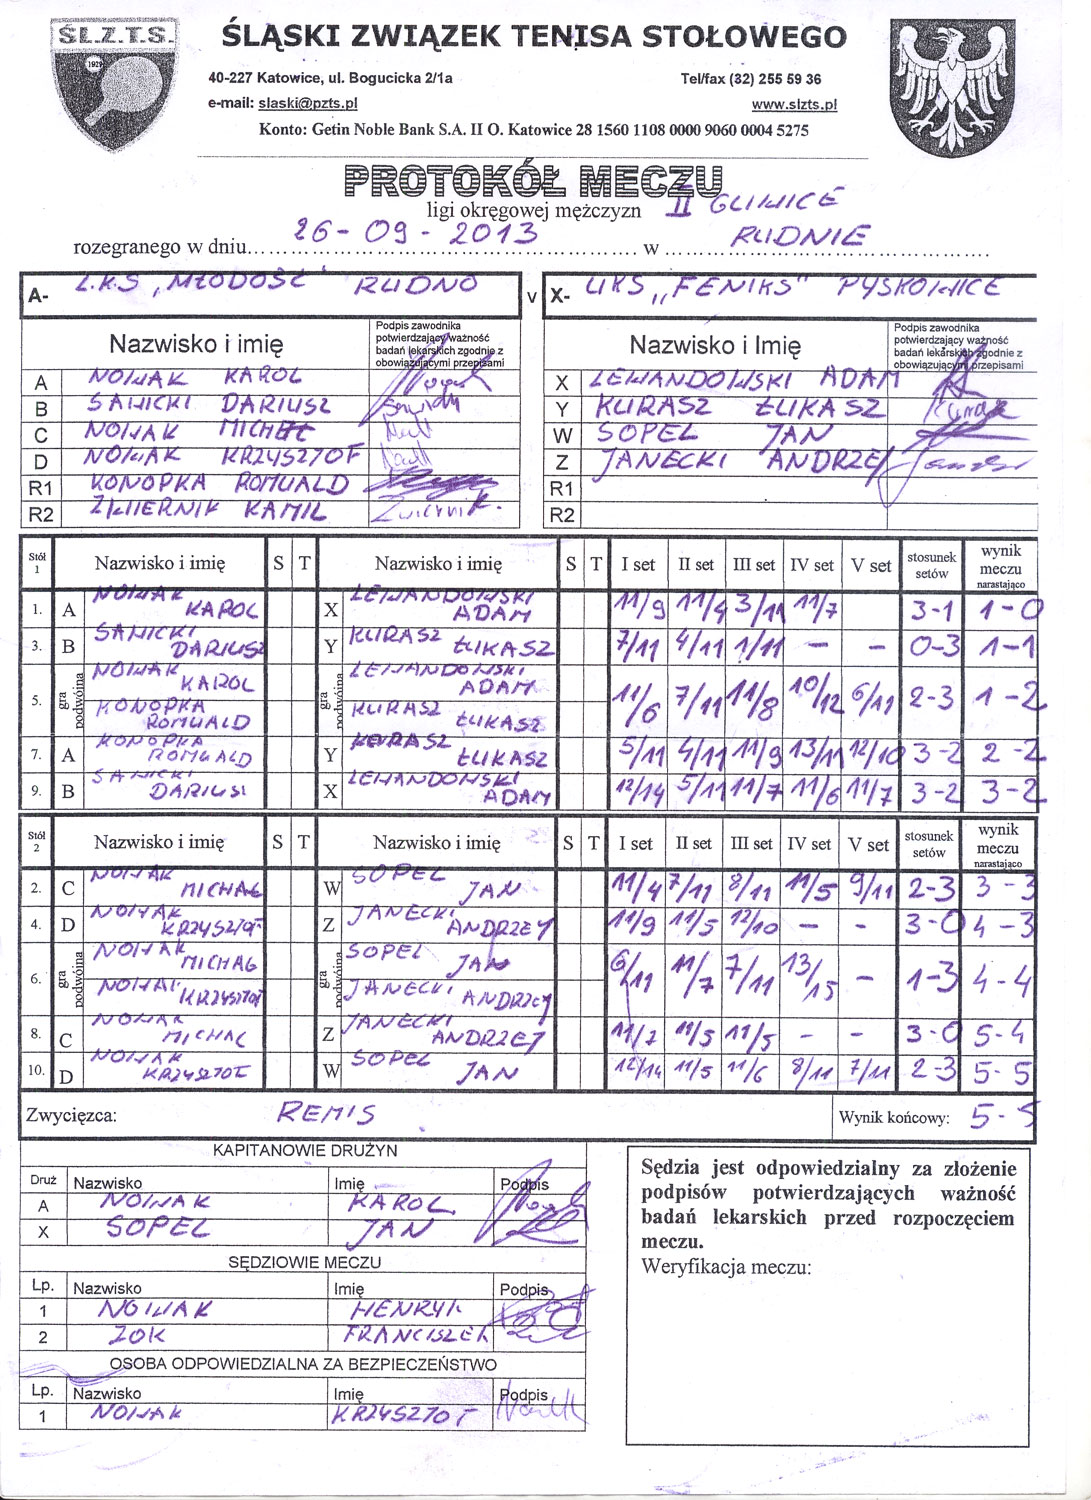 ŚL.Z.T.S.
1929
ŚLĄSKI ZWIĄZEK TENISA STOŁOWEGO
40-227 Katowice, ul. Bogucicka 2/1a Tel/fax (32) 255 59 36
e-mail: slaski@pzts.pl www.slzts.pl
Konto: Getin Noble Bank S.A. II O. Katowice 28 1560 1108 0000 9060 0004 5275
PROTOKÓŁ MECZU
ligi okręgowej mężczyzn II GLIWICE
rozegranego w dniu 26-09-2013 w RUDNIE
A- L.K.S „MŁODOŚĆ" RUDNO v X- UKS „FENIKS" PYSKOWICE
Nazwisko i imię Podpis zawodnika potwierdzający ważność badań lekarskich zgodnie z obowiązującymi przepisami Nazwisko i Imię Podpis zawodnika potwierdzający ważność badań lekarskich zgodnie z obowiązującymi przepisami
A NOWAK KAROL X LEWANDOWSKI ADAM
B SAWICKI DARIUSZ Y KURASZ ŁUKASZ
C NOWAK MICHAŁ W SOPEL JAN
D NOWAK KRZYSZTOF Z JANECKI ANDRZEJ
R1 KONOPKA ROMUALD R1
R2 ZWIERNIK KAMIL Zwiernik K. R2
Stół 1 Nazwisko i imię S T Nazwisko i imię S T I set II set III set IV set V set stosunek setów wynik meczu narastająco
1. A NOWAK KAROL X LEWANDOWSKI ADAM 11/9 11/4 3/11 11/7 3-1 1-0
3. B SAWICKI DARIUSZ Y KURASZ ŁUKASZ 7/11 4/11 1/11 - - 0-3 1-1
5. gra podwójna NOWAK KAROL KONOPKA ROMUALD gra podwójna LEWANDOWSKI ADAM KURASZ ŁUKASZ 11/6 7/11 11/8 10/12 6/11 2-3 1-2
7. A KONOPKA ROMUALD Y KURASZ ŁUKASZ 5/11 4/11 11/9 13/11 12/10 3-2 2-2
9. B SAWICKI DARIUSZ X LEWANDOWSKI ADAM 12/14 5/11 11/7 11/6 11/7 3-2 3-2
Stół 2 Nazwisko i imię S T Nazwisko i imię S T I set II set III set IV set V set stosunek setów wynik meczu narastająco
2. C NOWAK MICHAŁ W SOPEL JAN 11/4 7/11 8/11 11/5 9/11 2-3 3-3
4. D NOWAK KRZYSZTOF Z JANECKI ANDRZEJ 11/9 11/5 12/10 - - 3-0 4-3
6. gra podwójna NOWAK MICHAŁ NOWAK KRZYSZTOF gra podwójna SOPEL JAN JANECKI ANDRZEJ 6/11 11/7 7/11 13/15 - 1-3 4-4
8. C NOWAK MICHAŁ Z JANECKI ANDRZEJ 11/7 11/5 11/5 - - 3-0 5-4
10. D NOWAK KRZYSZTOF W SOPEL JAN 12/14 11/5 11/6 8/11 7/11 2-3 5-5
Zwycięzca: REMIS Wynik końcowy: 5-5
KAPITANOWIE DRUŻYN
Druż Nazwisko Imię Podpis
A NOWAK KAROL
X SOPEL JAN
SĘDZIOWIE MECZU
Lp. Nazwisko Imię Podpis
1 NOWAK HENRYK
2 ZOK FRANCISZEK
OSOBA ODPOWIEDZIALNA ZA BEZPIECZEŃSTWO
Lp. Nazwisko Imię Podpis
1 NOWAK KRZYSZTOF
Sędzia jest odpowiedzialny za złożenie
podpisów potwierdzających ważność
badań lekarskich przed rozpoczęciem
meczu.
Weryfikacja meczu: